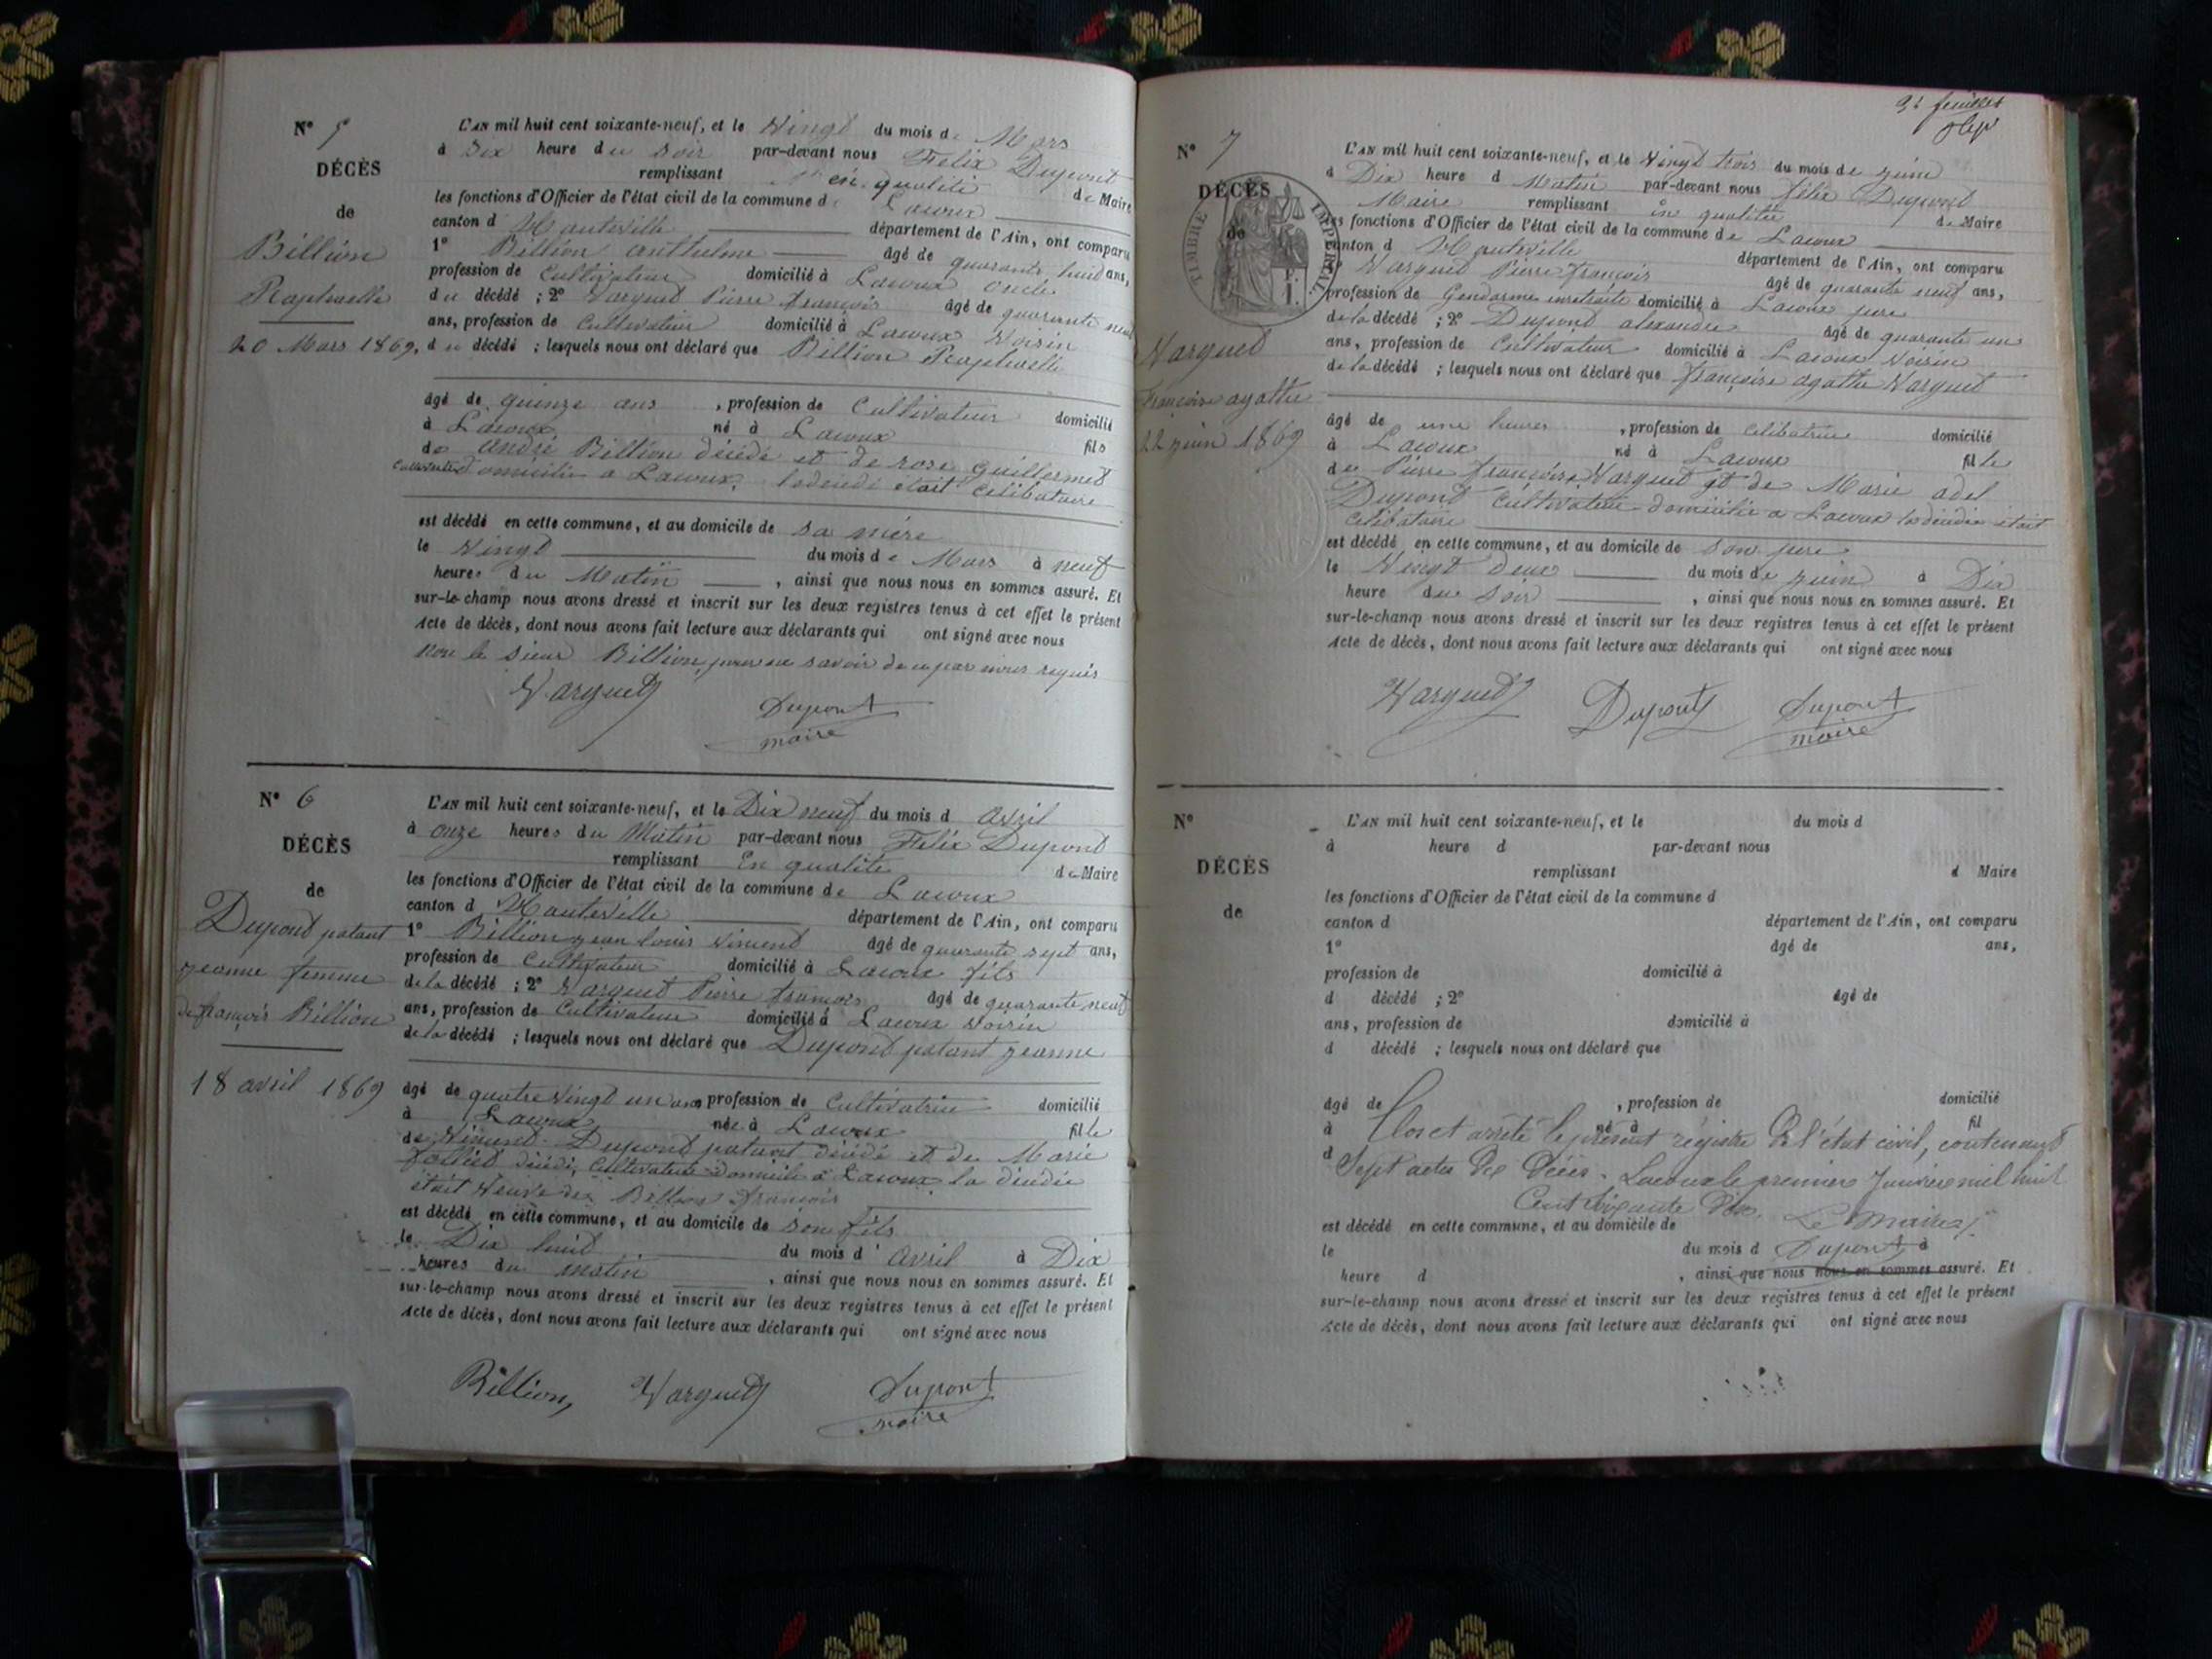 N° 5
DÉCÈS
de
Billion
Raphaelle
20 Mars 1869.
L'AN mil huit cent soixante-neuf, et le Vingt du mois de Mars
à six heure du soir par-devant nous Felix Dupont
remplissant en qualité de Maire
les fonctions d'Officier de l'état civil de la commune de Lacoux
canton d Hauteville département de l'Ain, ont comparu
1° Billion anthelme âgé de quarante huit ans,
profession de Cultivateur domicilié à Lacoux oncle
du décédé ; 2° Varguet Pierre françois âgé de quarante neuf
ans, profession de Cultivateur domicilié à Lacoux Voisin
du décédé ; lesquels nous ont déclaré que Billion Raphaelle
âgé de quinze ans , profession de Cultivateur domicilié
à Lacoux né à Lacoux fils
de andré Billion décédé et de rose Guillermet
domicilié a Lacoux. le décédé était Célibataire
est décédé en cette commune, et au domicile de sa mère
le Vingt du mois de Mars à neuf
heures du Matin , ainsi que nous nous en sommes assuré. Et
sur-le-champ nous avons dressé et inscrit sur les deux registres tenus à cet effet le présent
Acte de décès, dont nous avons fait lecture aux déclarants qui ont signé avec nous
non le sieur Billion, pour ne savoir de ce par nous requis
Varguet Dupont
maire
N° 6
DÉCÈS
de
Dupond patant
jeanne femme
de françois Billion
18 avril 1869
L'AN mil huit cent soixante-neuf, et le Dix neuf du mois d avril
à onze heures du Matin par-devant nous Félix Dupond
remplissant En qualité de Maire
les fonctions d'Officier de l'état civil de la commune de Lacoux
canton d Hauteville département de l'Ain, ont comparu
1° Billion jean louis Vincend âgé de quarante sept ans,
profession de Cultivateur domicilié à Lacoux fils
de la décédé ; 2° Varguet Pierre françois âgé de quarante neuf
ans, profession de Cultivateur domicilié à Lacoux Voisin
de la décédé ; lesquels nous ont déclaré que Dupond patant jeanne
âgé de quatre Vingt un ans profession de Cultivatrice domicilié
à Lacoux née à Lacoux fille
de Vincend Dupond patant décédé et de Marie
décédé, Cultivateur domicilié a Lacoux la décédée
était Veuve de Billion françois
est décédé en cette commune, et au domicile de son fils
le Dix huit du mois d'avril à Dix
heures du matin , ainsi que nous nous en sommes assuré. Et
sur-le-champ nous avons dressé et inscrit sur les deux registres tenus à cet effet le présent
Acte de décès, dont nous avons fait lecture aux déclarants qui ont signé avec nous
Billion, Varguet Dupont
maire
feuillet
N° 7
DÉCÈS
de
TIMBRE IMPÉRIAL
1 F.
Varguet
Françoise agathe
22 juin 1869
L'AN mil huit cent soixante-neuf, et le Vingt trois du mois de juin
à Dix heure d Matin par-devant nous félix Dupond
Maire remplissant en qualitée de Maire
les fonctions d'Officier de l'état civil de la commune de Lacoux
canton d Hauteville département de l'Ain, ont comparu
1° Varguet Pierre françois âgé de quarante neuf ans,
profession de Gendarme enretraite domicilié à Lacoux pere
de la décédé ; 2° Dupond alexandre âgé de quarante un
ans, profession de Cultivateur domicilié à Lacoux Voisin
de la décédé ; lesquels nous ont déclaré que françoise agathe Varguet
âgé de une heure , profession de celibatrice domicilié
à Lacoux né à Lacoux fille
de Pierre françois Varguet et de Marie adel
Dupond Cultivateur domicilié a Lacoux la décédée était
celibataire
est décédé en cette commune, et au domicile de son pere
le Vingt deux du mois de juin à Dix
heure du soir , ainsi que nous nous en sommes assuré. Et
sur-le-champ nous avons dressé et inscrit sur les deux registres tenus à cet effet le présent
Acte de décès, dont nous avons fait lecture aux déclarants qui ont signé avec nous
Varguet Dupont Dupont
maire
N°
DÉCÈS
de
L'AN mil huit cent soixante-neuf, et le du mois d
à heure d par-devant nous
remplissant d Maire
les fonctions d'Officier de l'état civil de la commune d
canton d département de l'Ain, ont comparu
1° âgé de ans,
profession de domicilié à
d décédé ; 2° âgé de
ans, profession de domicilié à
d décédé ; lesquels nous ont déclaré que
âgé de , profession de domicilié
à né à fil
d
Clos et arrêté le présent régistre de l'état civil, contenant
Sept actes de Décès. Lacoux le premier Janvier mil huit
Cent soixante dix. Le Maire
est décédé en cette commune, et au domicile de
le du mois d à
Dupont
heure d , ainsi que nous nous en sommes assuré. Et
sur-le-champ nous avons dressé et inscrit sur les deux registres tenus à cet effet le présent
Acte de décès, dont nous avons fait lecture aux déclarants qui ont signé avec nous